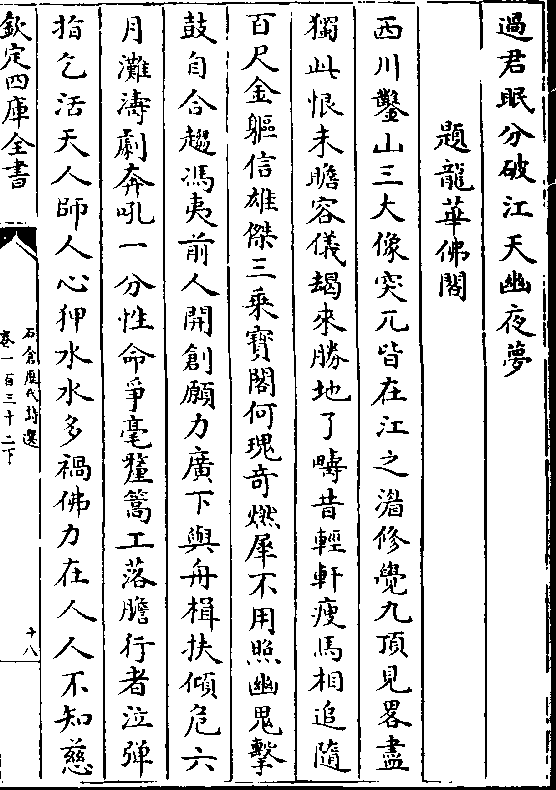 過君眠分破江天幽夜夢
題龍華佛閣
西川鑿山三大像突兀皆在江之湄修覺九頂見畧盡
獨此恨未瞻容儀朅來勝地了疇昔輕軒瘦馬相追隨
百尺金軀信雄傑三乘寶閣何瑰奇燃犀不用照幽鬼擊
鼓自合趨馮夷前人開創願力廣下與舟楫扶傾危六
月灘濤劇奔吼一分性命爭毫釐篙工落膽行者泣彈
指乞活天人師人心狎水水多禍佛力在人人不知慈
欽定四庫全書
石倉歷代詩選
卷一百三十二下
十八